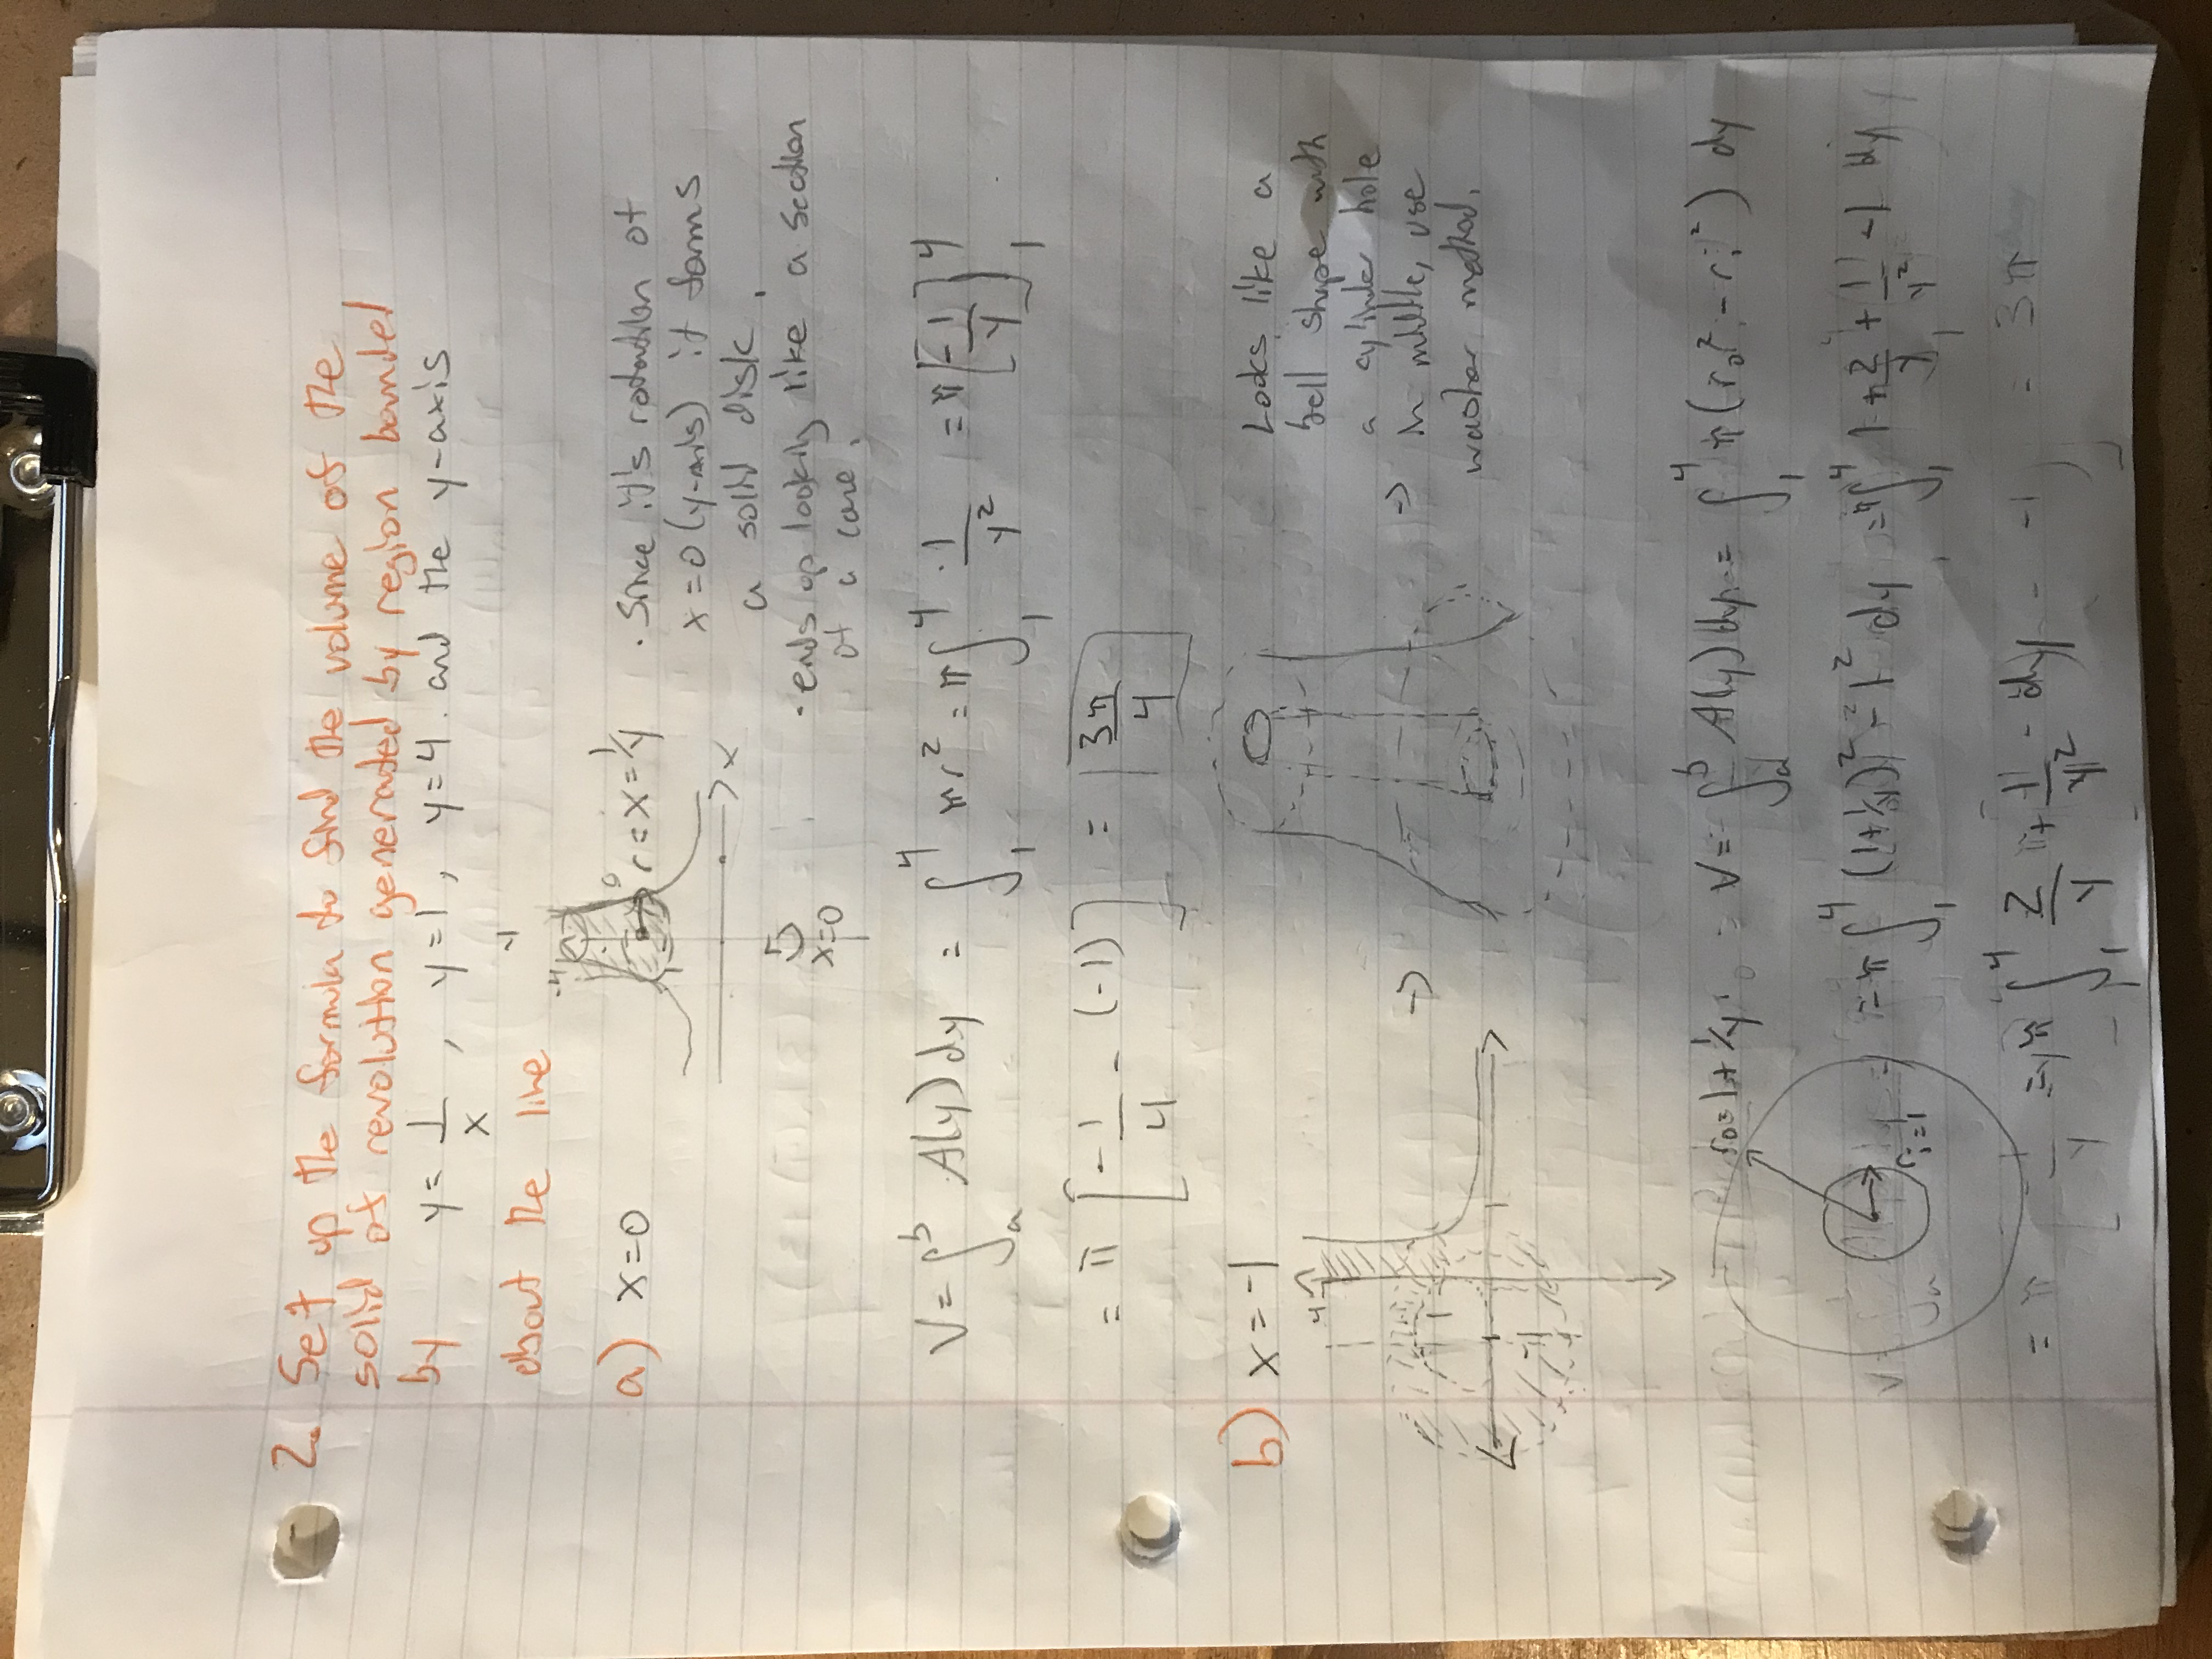 2. Set up the formula to find the volume of the
solid of revolution generated by region bounded
by y = 1/x , y=1, y=4. and the y-axis
about the line
a) x=0
4
r = x = 1/y
1
x
x=0
· Since it's rotation of
x=0 (y-axis) it forms
a solid disk.
· ends up looking like a section
of a cone.
V = ∫_a^b A(y) dy = ∫_1^4 πr² = π∫_1^4 1/y² = π[-1/y]_1^4
= π [-1/4 - (-1)] = 3π/4
b) x = -1
4
1
-1
→
→
Looks like a
bell shape with
a cylinder hole
in middle, use
washer method.
r₀=1+1/y
r_i=1
V = ∫_a^b A(y) dy = ∫_1^4 π(r₀² - r_i²) dy
= π ∫_1^4 (1+1/y)² - 1² dy = π∫_1^4 1 + 2/y + 1/y² - 1 dy
= π ∫_1^4 2/y + 1/y² dy
= 3π